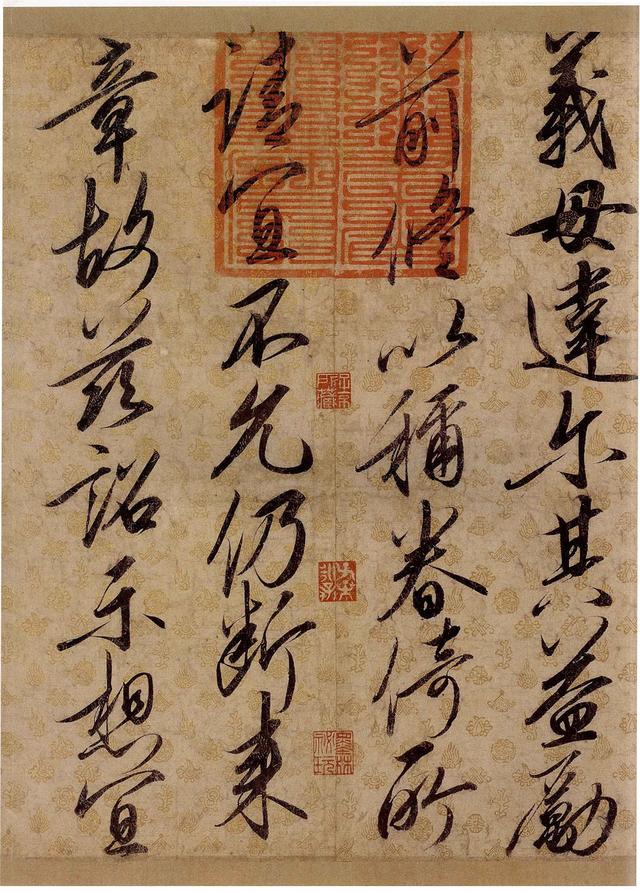 義毋違尔其益勵
前修以稱眷倚所
請宜不允仍斷來
章故兹詔示想宜